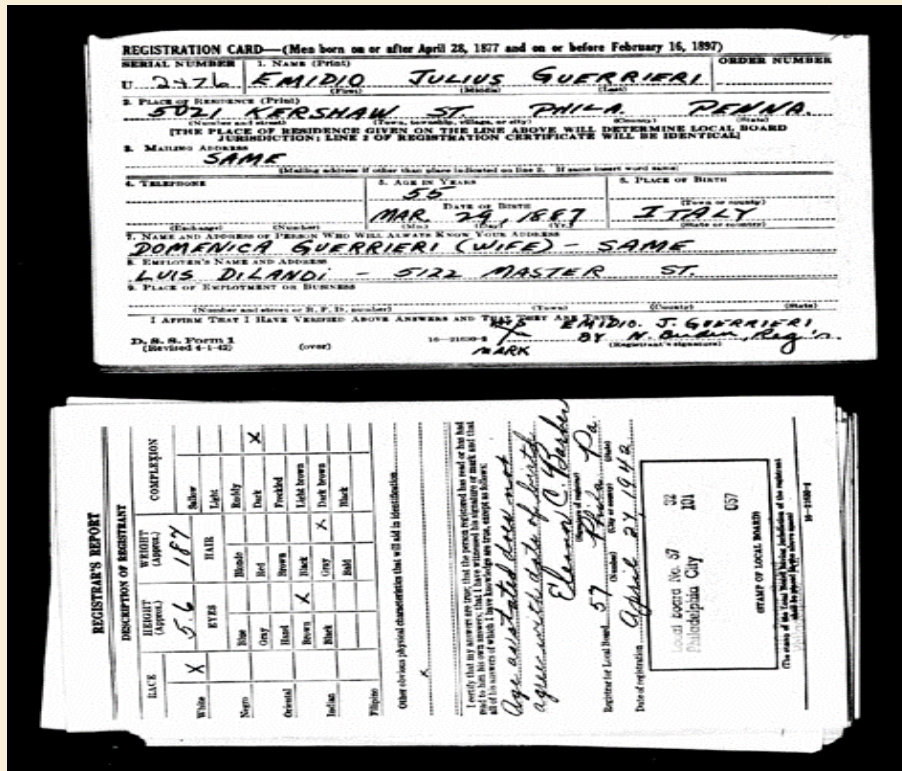 REGISTRATION CARD—(Men born on or after April 28, 1877 and on or before February 16, 1897)
SERIAL NUMBER 1. NAME (Print) ORDER NUMBER
U 2476 EMIDIO JULIUS GUERRIERI
(First) (Middle) (Last)
2. PLACE OF RESIDENCE (Print)
5021 KERSHAW ST. PHILA PENNA.
(Number and street) (Town, township, village, or city) (County) (State)
[THE PLACE OF RESIDENCE GIVEN ON THE LINE ABOVE WILL DETERMINE LOCAL BOARD
JURISDICTION; LINE 2 OF REGISTRATION CERTIFICATE WILL BE IDENTICAL]
3. MAILING ADDRESS
SAME
(Mailing address if other than place indicated on line 2. If same insert word same)
4. TELEPHONE 5. AGE IN YEARS 6. PLACE OF BIRTH
55
DATE OF BIRTH (Town or county)
MAR. 29, 1887 ITALY
(Exchange) (Number) (Mo.) (Day) (Yr.) (State or country)
7. NAME AND ADDRESS OF PERSON WHO WILL ALWAYS KNOW YOUR ADDRESS
DOMENICA GUERRIERI (WIFE) - SAME
8. EMPLOYER'S NAME AND ADDRESS
LUIS DILANDI - 5122 MASTER ST.
9. PLACE OF EMPLOYMENT OR BUSINESS
(Number and street or R. F. D. number) (Town) (County) (State)
I AFFIRM THAT I HAVE VERIFIED ABOVE ANSWERS AND THAT THEY ARE TRUE.
X EMIDIO. J. GUERRIERI
D. S. S. Form 1 BY N. Reg'r.
(Revised 4-1-42) (over) 16—21630-2 MARK (Registrant's signature)
REGISTRAR'S REPORT
DESCRIPTION OF REGISTRANT
RACE HEIGHT (Approx.) WEIGHT (Approx.) COMPLEXION
White X 5.6 187 Sallow
EYES HAIR Light
Negro Blue Blonde Ruddy
Gray Red Dark X
Oriental Hazel Brown Freckled
Brown X Black Light brown
Indian Black Gray X Dark brown
Filipino Bald Black
Other obvious physical characteristics that will aid in identification
X
I certify that my answers are true; that the person registered has read or has had
read to him his own answers; that I have witnessed his signature or mark and that
all of his answers of which I have knowledge are true, except as follows:
Age as stated does not
agree with date of birth
Elenor C. Barker
(Signature of registrar)
Registrar for Local Board 57 Phila. Pa.
(Number) (City or county) (State)
Date of registration April 27 1942
Local Board No. 57 32
Philadelphia City 101
057
(STAMP OF LOCAL BOARD)
(The stamp of the Local Board having jurisdiction of the registrant
shall be placed in the above space)
16—21630-1